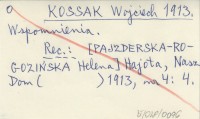 O KOSSAK Wojciech 1913.
Wspomnienia.
Rec.: [PAJZDERSKA-RO-
GOZIŃSKA Helena] Hajota, Nasz
Dom ( ) 1913, nr 4: 4.